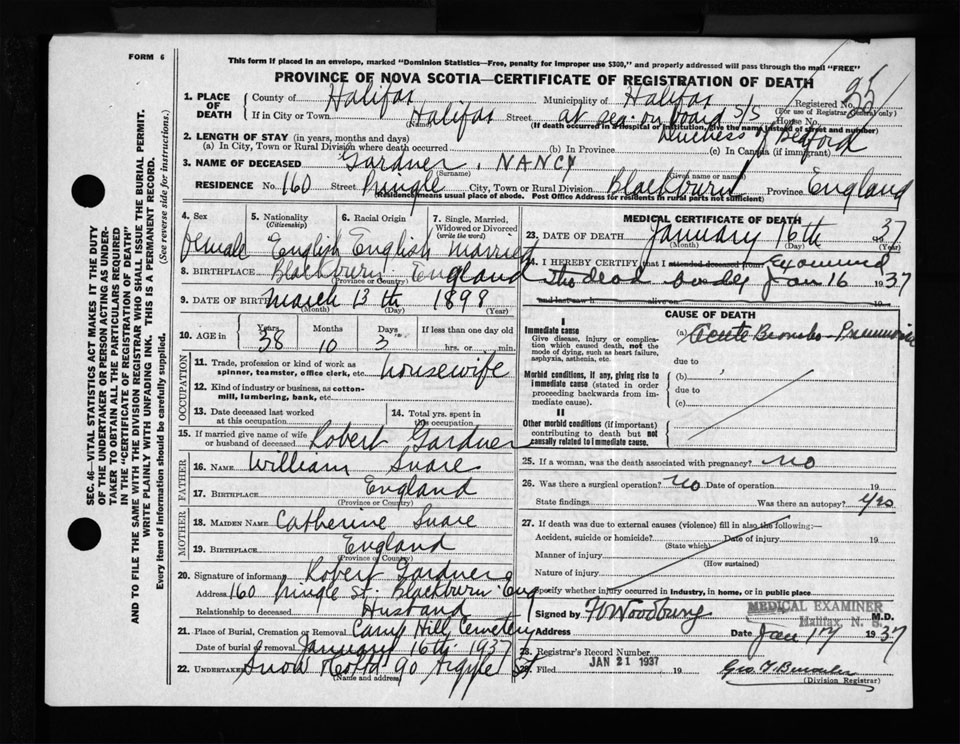 FORM 6
This form if placed in an envelope, marked "Dominion Statistics—Free, penalty for improper use $300," and properly addressed will pass through the mail "FREE"
PROVINCE OF NOVA SCOTIA—CERTIFICATE OF REGISTRATION OF DEATH
SEC. 46—VITAL STATISTICS ACT MAKES IT THE DUTY
OF THE UNDERTAKER OR PERSON ACTING AS UNDER-
TAKER TO OBTAIN ALL THE PARTICULARS REQUIRED
IN THE "CERTIFICATE OF REGISTRATION OF DEATH"
AND TO FILE THE SAME WITH THE DIVISION REGISTRAR WHO SHALL ISSUE THE BURIAL PERMIT.
WRITE PLAINLY WITH UNFADING INK. THIS IS A PERMANENT RECORD.
Every item of information should be carefully supplied. (See reverse side for instructions.)
1. PLACE OF DEATH
County of Halifax Municipality of Halifax Registered No. 
(For use of Registrar General only)
If in City or Town Halifax Street at sea on board S/S House No.
(Name)
(If death occurred in a hospital or institution, give the name instead of street and number)
Duchess of Bedford
2. LENGTH OF STAY (in years, months and days)
(a) In City, Town or Rural Division where death occurred (b) In Province (c) In Canada (if immigrant)
3. NAME OF DECEASED Gardner, NANCY
(Surname) (Given name or names)
RESIDENCE No. 160 Street Pringle City, Town or Rural Division Blackburn Province England
(Residence means usual place of abode. Post Office Address for residents in rural parts not sufficient)
4. Sex
female
5. Nationality
(Citizenship)
English
6. Racial Origin
English
7. Single, Married, Widowed or Divorced
(write the word)
married
8. BIRTHPLACE Blackburn England
(Province or Country)
9. DATE OF BIRTH March 13th 1898
(Month) (Day) (Year)
10. AGE in
Years Months Days If less than one day old
38 10 3 hrs. or min.
OCCUPATION
11. Trade, profession or kind of work as spinner, teamster, office clerk, etc. housewife
12. Kind of industry or business, as cotton-mill, lumbering, bank, etc.
13. Date deceased last worked at this occupation
14. Total yrs. spent in this occupation
15. If married give name of wife or husband of deceased Robert Gardner
FATHER
16. NAME William Snare
17. BIRTHPLACE England
(Province or Country)
MOTHER
18. MAIDEN NAME Catherine Snare
19. BIRTHPLACE England
(Province or Country)
20. Signature of informant Robert Gardner
Address 160 Pringle St. Blackburn Eng
Relationship to deceased Husband
21. Place of Burial, Cremation or Removal Camp Hill Cemetery
Date of burial or removal January 16th 1937
22. Undertaker Snow 90 Argyle St
(Name and address)
MEDICAL CERTIFICATE OF DEATH
23. DATE OF DEATH January 16th 1937
(Month) (Day) (Year)
24. I HEREBY CERTIFY that I attended deceased from Examined
the dead body Jan 16 1937
and last saw h alive on 19
CAUSE OF DEATH
I
Immediate cause
Give disease, injury or complication which caused death, not the mode of dying, such as heart failure, asphyxia, asthenia, etc.
(a) Acute Broncho-Pneumonia
due to
Morbid conditions, if any, giving rise to immediate cause (stated in order proceeding backwards from immediate cause).
(b)
due to
(c)
II
Other morbid conditions (if important) contributing to death but not causally related to immediate cause.
25. If a woman, was the death associated with pregnancy? no
26. Was there a surgical operation? no Date of operation 19
State findings Was there an autopsy? yes
27. If death was due to external causes (violence) fill in also the following:—
Accident, suicide or homicide? Date of injury 19
(State which)
Manner of injury
(How sustained)
Nature of injury
Specify whether injury occurred in industry, in home, or in public place
Signed by Woodbury M.D.
MEDICAL EXAMINER
Halifax, N. S.
Address Date Jan 17 1937
28. Registrar's Record Number
Filed JAN 21 1937 19
(Division Registrar)